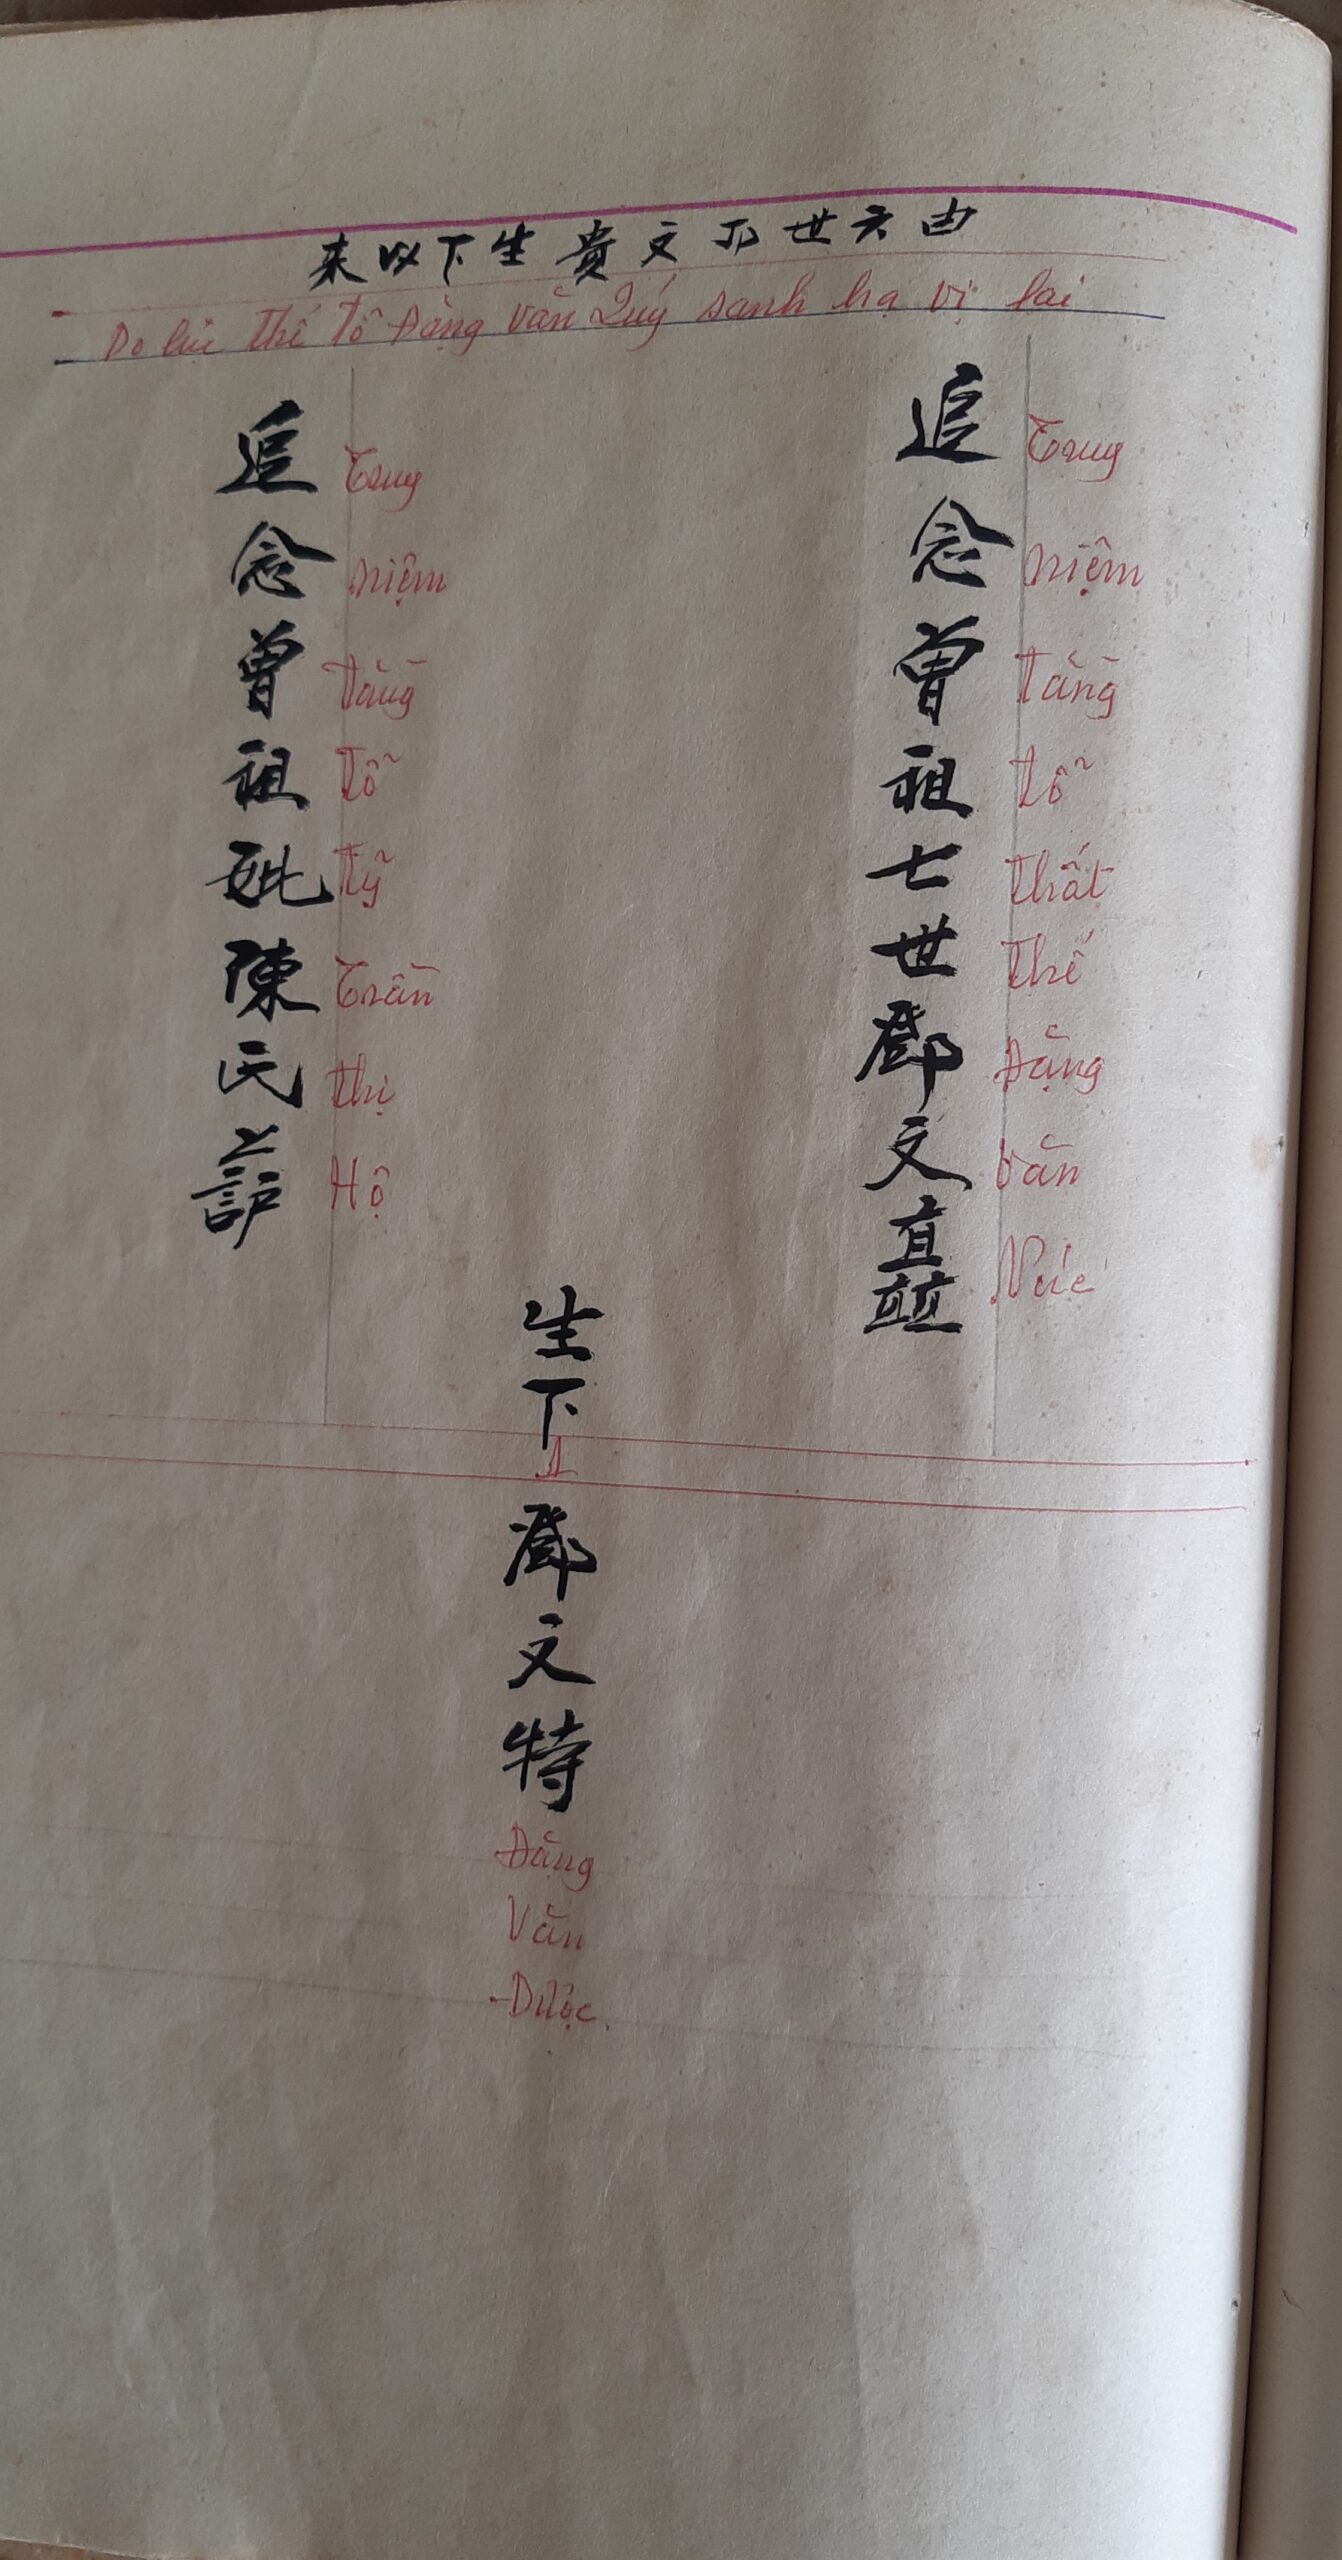 由六世卩文貴生下以来
Do lục thế tổ Đặng Văn Quý sanh hạ vị lai
追念曾祖七世鄧文矗
Truy niệm tằng tổ thất thế Đặng Văn
追念曾祖妣陳氏護
Truy niệm tằng tổ tỷ Trần thị Hộ
生下
1
鄧文特
Đặng
Văn
Được